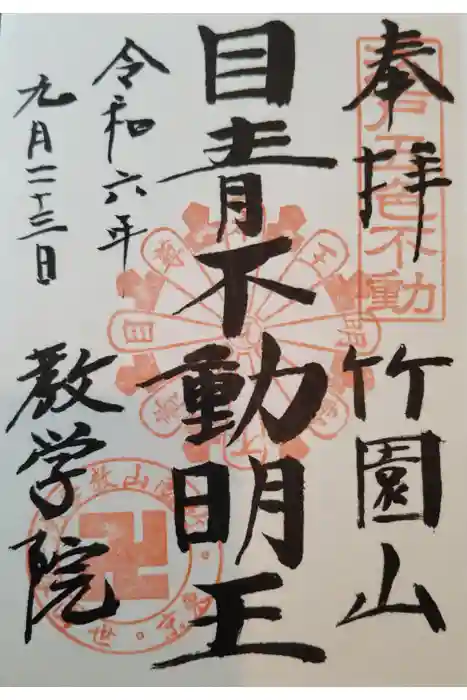 奉拝
江戸五色不動
竹園山
目青不動明王
令和六年
九月二十三日
教学院